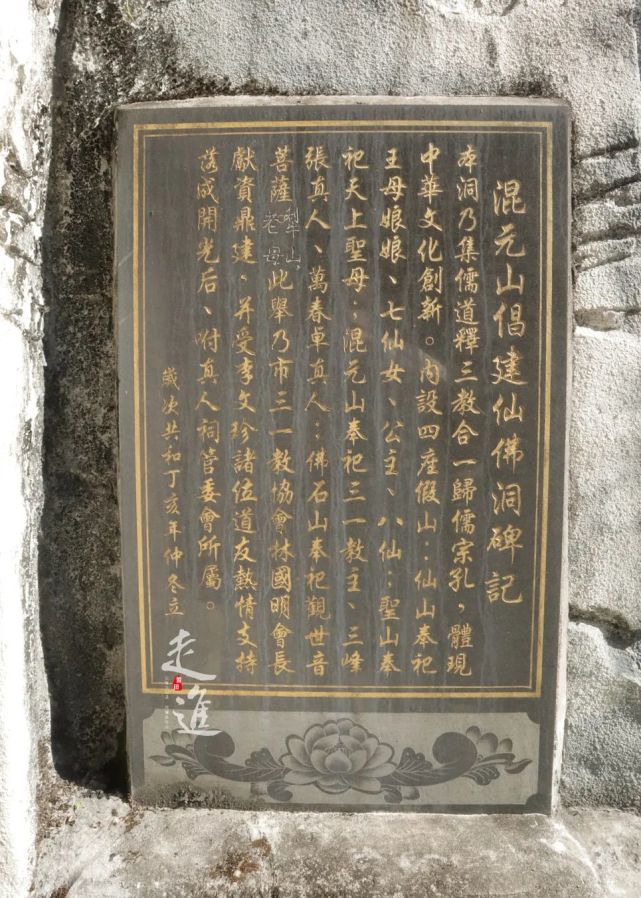 混元山倡建仙佛洞碑記
本洞乃集儒道釋三教合一歸儒宗孔，體現
中華文化創新。內設四座假山：仙山奉祀
王母娘娘、七仙女、公主、八仙；聖山奉
祀天上聖母；混元山奉祀三一教主、三峰
張真人、萬春卓真人；佛石山奉祀觀世音
菩薩犁山老母此舉乃市三一教協會林國明會長
獻資鼎建，并受李文珍諸位道友熱情支持
落成開光后、附真人祠管委會所屬。
歲次共和丁亥年仲冬立
走進
莆田